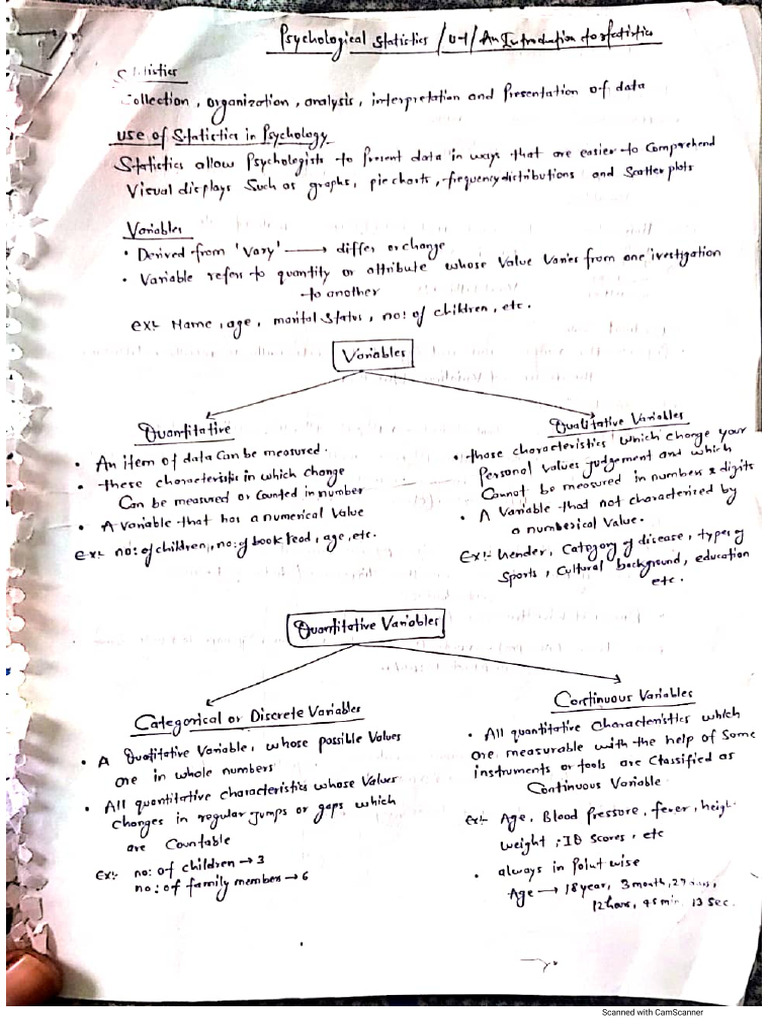 Psychological Statistics / U-1 / An Introduction to statistics
Statistics
Collection, organization, analysis, interpretation and Presentation of data
use of Statistics in Psychology
Statistics allow Psychologists to Present data in ways that are easier to Comprehend
Visual displays Such as graphs, pie charts, frequency distributions and Scatter plots
Variables
• Derived from 'Vary' → differ or change
• Variable refers to quantity or attribute whose Value Varies from one ivestigation
to another
ex:- Name, age, marital Status, no: of children, etc.
Variables
Quantitative
• An item of data Can be measured.
• these characteristic in which change
Can be measured or Counted in number
• A Variable that has a numerical Value
ex:- no: of children, no: of book read, age, etc.
Qualitative Variables
• those characteristics which change your
Personal Values judgement and which
Cannot be measured in numbers & digits
• A Variable that not characterized by
a numberical Value.
Ex:- Gender, Category of disease, types of
Sports, Cultural background, education
etc.
Quantitative Variables
Categorical or Discrete Variables
• A Quatitative Variable, whose possible Values
are in whole numbers
• All quantitative characteristics whose Values
changes in regular jumps or gaps which
are Countable
Ex:- no: of children → 3
no: of family member → 6
Continuous Variables
• All quantitative characteristics which
are measurable with the help of Some
instruments or tools are Classified as
Continuous Variable
Ex:- Age, Blood Pressure, fever, height
weight, IQ Scores, etc
• always in Point wise
Age → 18 year, 3 month, 27
12 hours, 45 min, 13 Sec.
Scanned with CamScanner